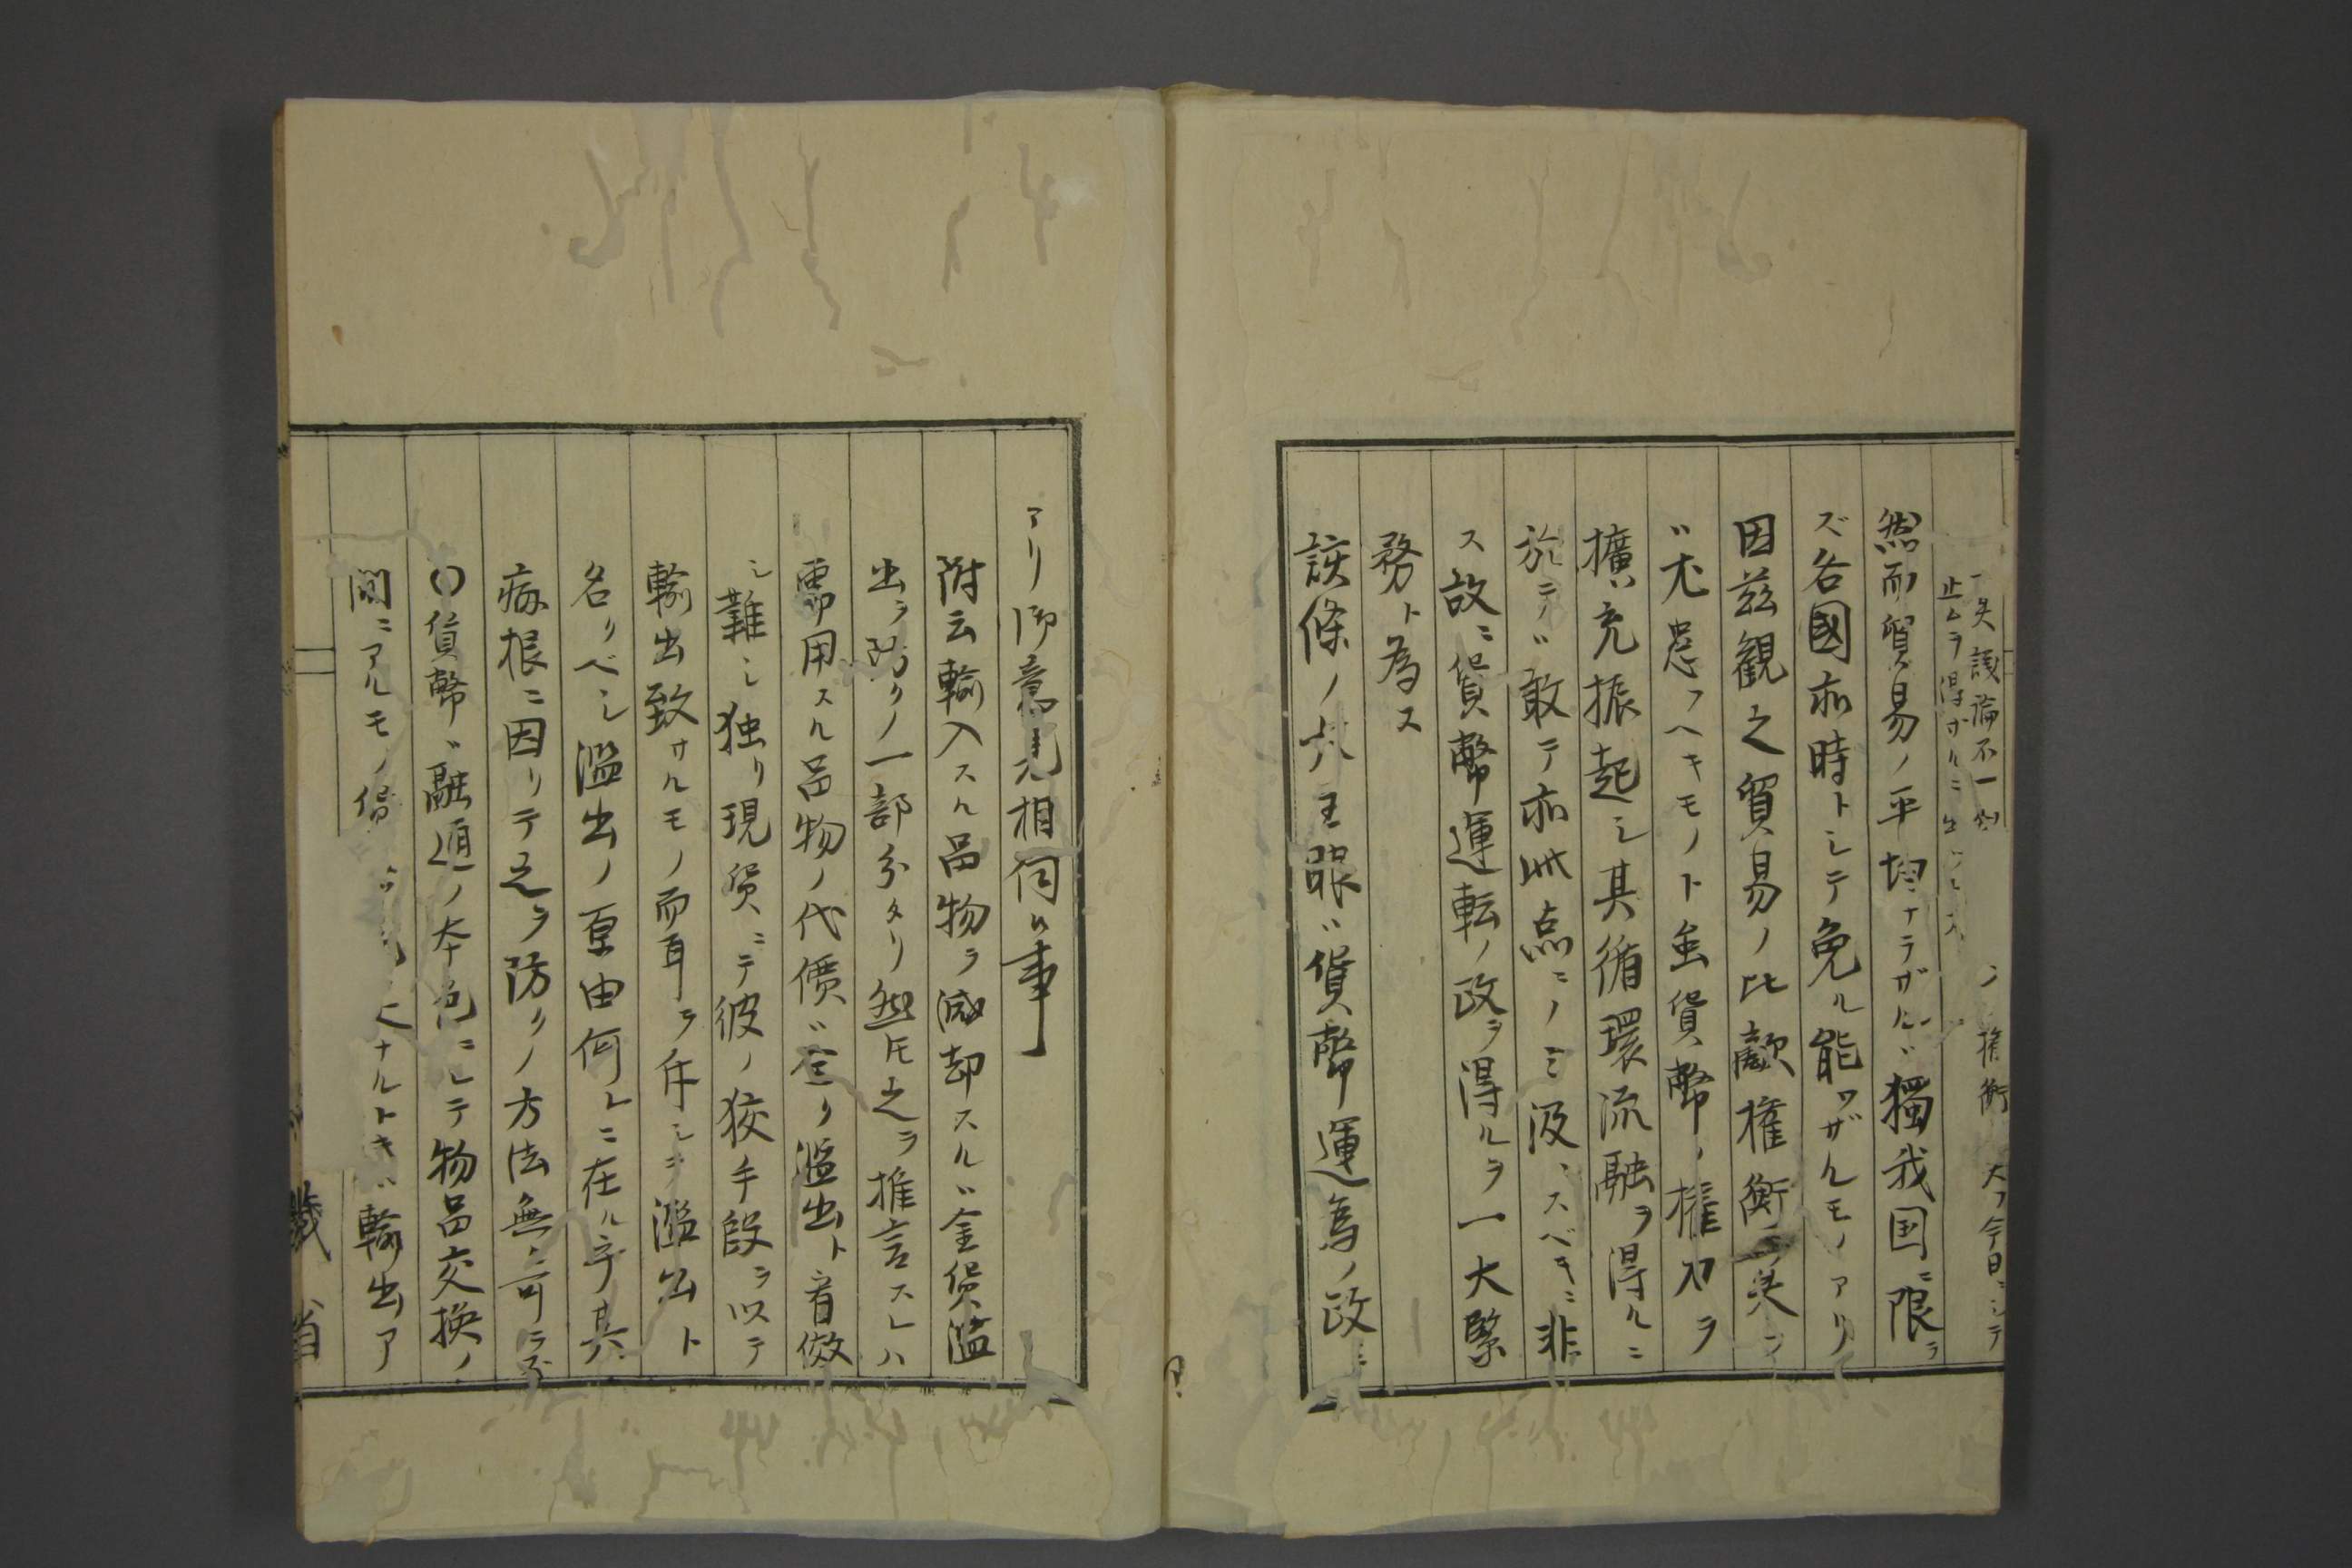 一失議論不一
権衡
大ヲ今日ニシテ
止ムヲ得サルニ出
然而貿易ノ平均ナラザルハ獨我国ニ限ラ
ズ各國亦時トシテ免ル能ワザルモノアリ
因茲観之貿易ノ比較権衡ヲ失フ
ハ尤患フヘキモノト虽貨幣ノ権力ヲ
擴充振起シ其循環流融ヲ得ルニ
於テハ敢テ亦此点ニノミ汲々スベキニ非
ス故ニ貨幣運転ノ政ヲ得ルヲ一大緊
務ト為ス
該條ノ大主眼ハ貨幣運為ノ政ニ
アリ御意見相伺ヒ事
附云輸入スル品物ヲ減却スルハ金貨濫
出ヲ防クノ一部分タリ然モ之ヲ推言スレハ
需用スル品物ノ代價ハ全ク濫出ト看做
シ難シ独リ現貨ニテ彼ノ狡手段ヲ以テ
輸出致サルモノ而耳ヲ斥シテ濫出ト
名クベシ濫出ノ原由何レニ在ル乎其
病根ニ因リテ之ヲ防クノ方法無ル可ラズ
〇貨幣ハ融通ノ本色ニシテ物品交換ノ
間ニアルモノ
大ナルトキハ輸出ア
蔵省